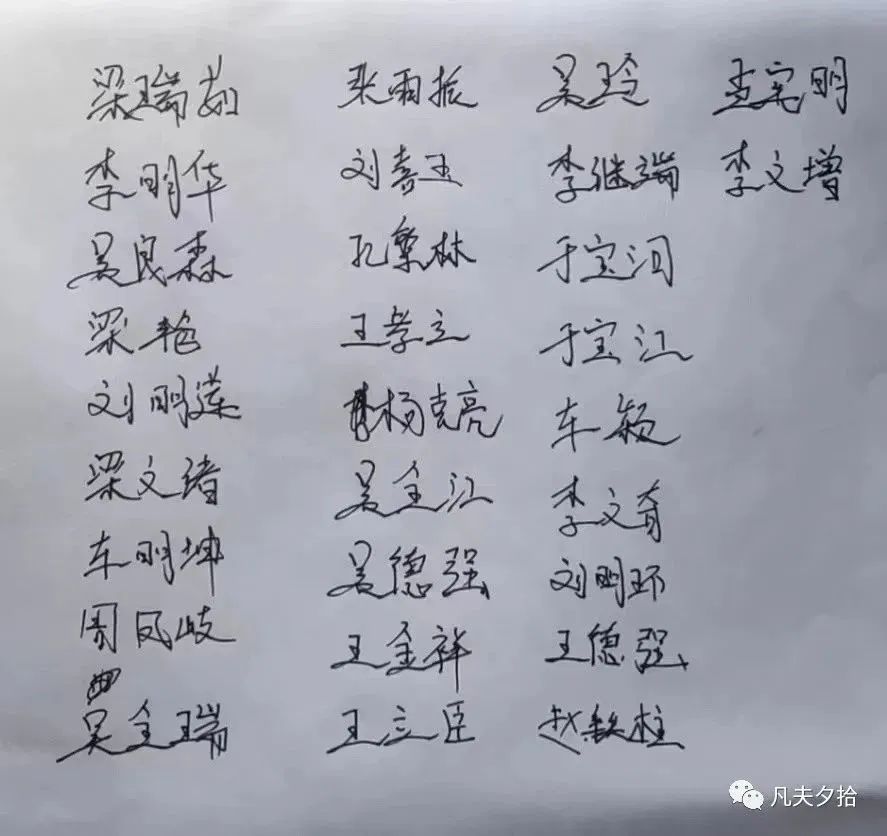 梁瑞茹 张雨振 吴玲 孟宪明
李明华 刘喜玉 李继瑞 李文增
吴良森 孔繁林 于宝泪
梁艳 王孝立 于宝江
刘明莲 杨克亮 车颖
梁文绪 吴全江 李文育
车明坤 吴德强 刘明环
周凤岐 王金祥 王德强
吴全瑞 王立臣 赵铁柱
凡夫夕拾